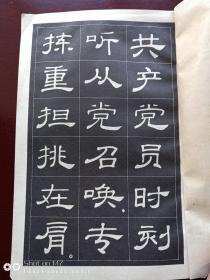 共产党员时刻
听从党召唤，专
拣重担挑在肩。
SHOT ON M7